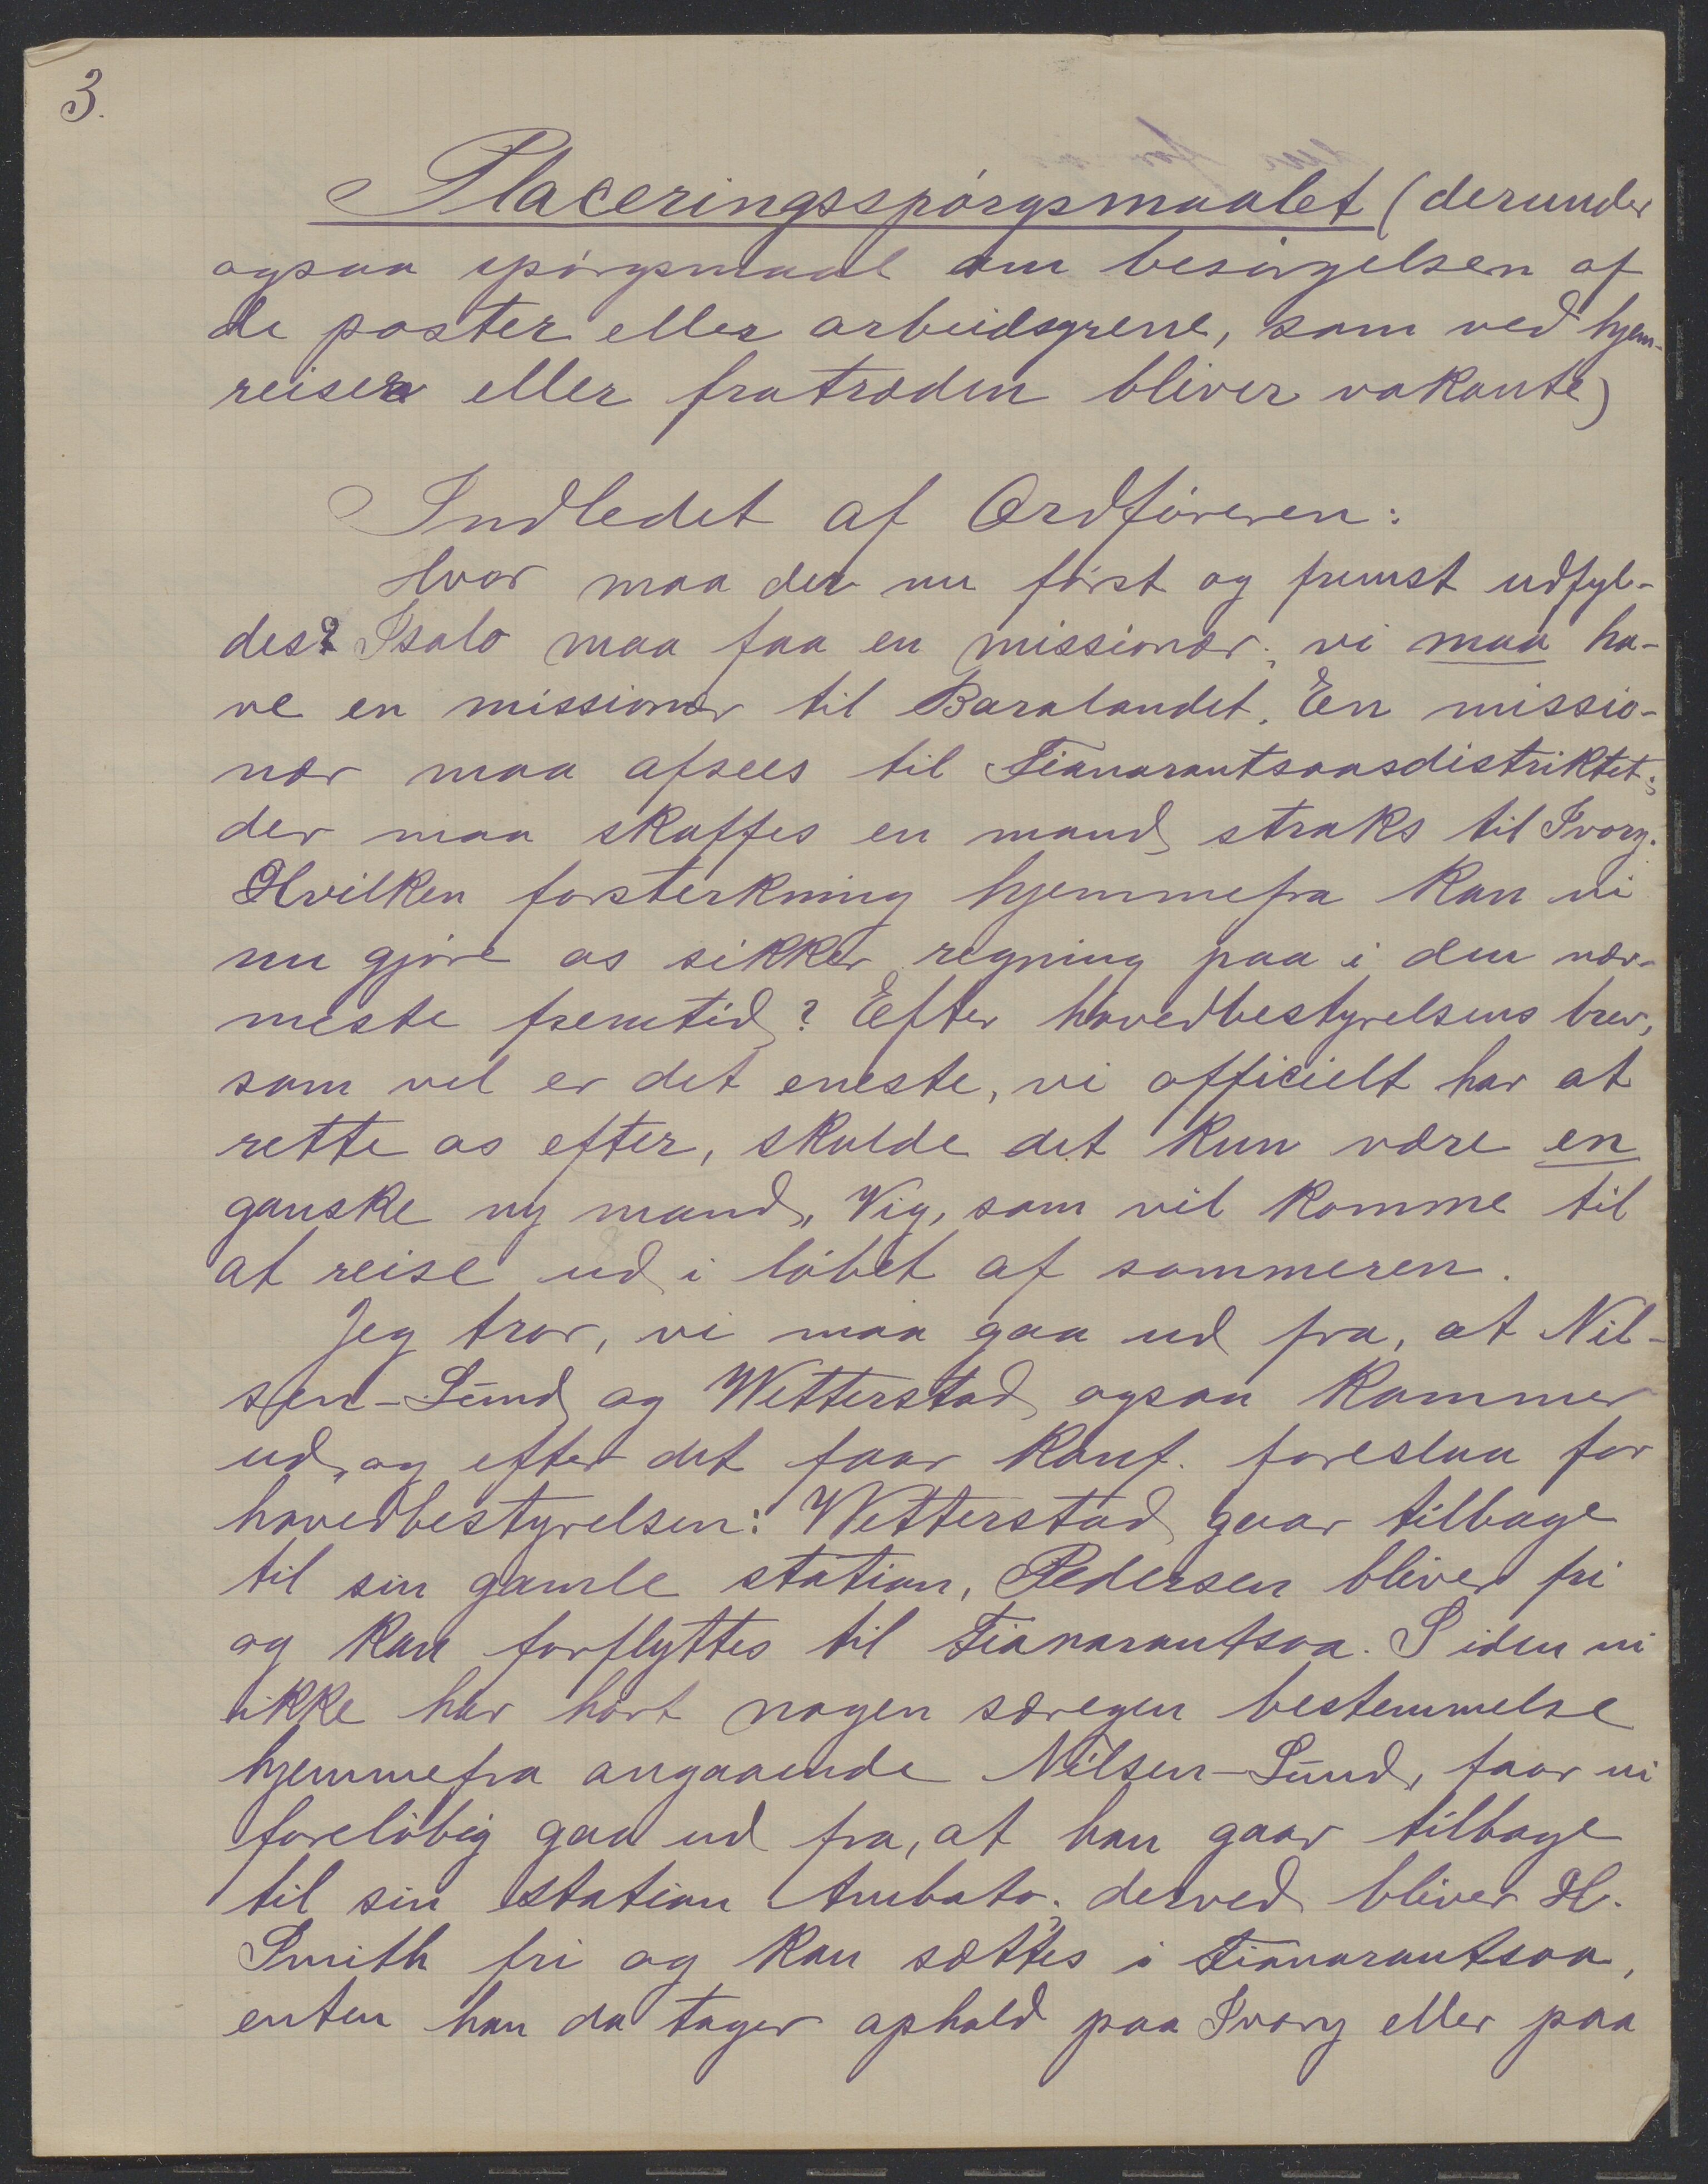 3.
Placeringsspörgsmaalet (derunder
ogsaa spörgsmaal om besörgelsen af
de poster eller arbeidsgrene, som ved hjem-
reiser eller fratræden bliver vakante)
Indledet af Ordföreren:
Hvor maa der nu först og fremst udfyl-
des? Isalo maa faa en missionær; vi maa ha-
ve en missionær til Baralandet. En missio-
nær maa afsees til Fianarantsoasdistriktet;
der maa skaffes en mand straks til Ivory.
Hvilken forsterkning hjemmefra kan vi
nu gjöre os sikker regning paa i den nær-
meste fremtid? Efter hovedbestyrelsens brev,
som vel er det eneste, vi officielt har at
rette os efter, skulde det kun være en
ganske ny mand, Vig, som vil komme til
at reise ud i löbet af sommeren.
Jeg tror, vi maa gaa ud fra, at Nil-
sen-Lund og Wetterstad ogsaa kommer
ud, og efter det faar konf. foreslaa for
hovedbestyrelsen: Wetterstad gaar tilbage
til sin gamle station, Pedersen bliver fri
og kan forflyttes til Fianarantsoa. Siden vi
ikke har hört nogen særegen bestemmelse
hjemmefra angaaende Nilsen-Lund, faar vi
forelöbig gaa ud fra, at han gaar tilbage
til sin station Ambato; derved bliver H.
Smith fri og kan sættes i Fianarantsoa,
enten han da tager ophold paa Ivory eller paa